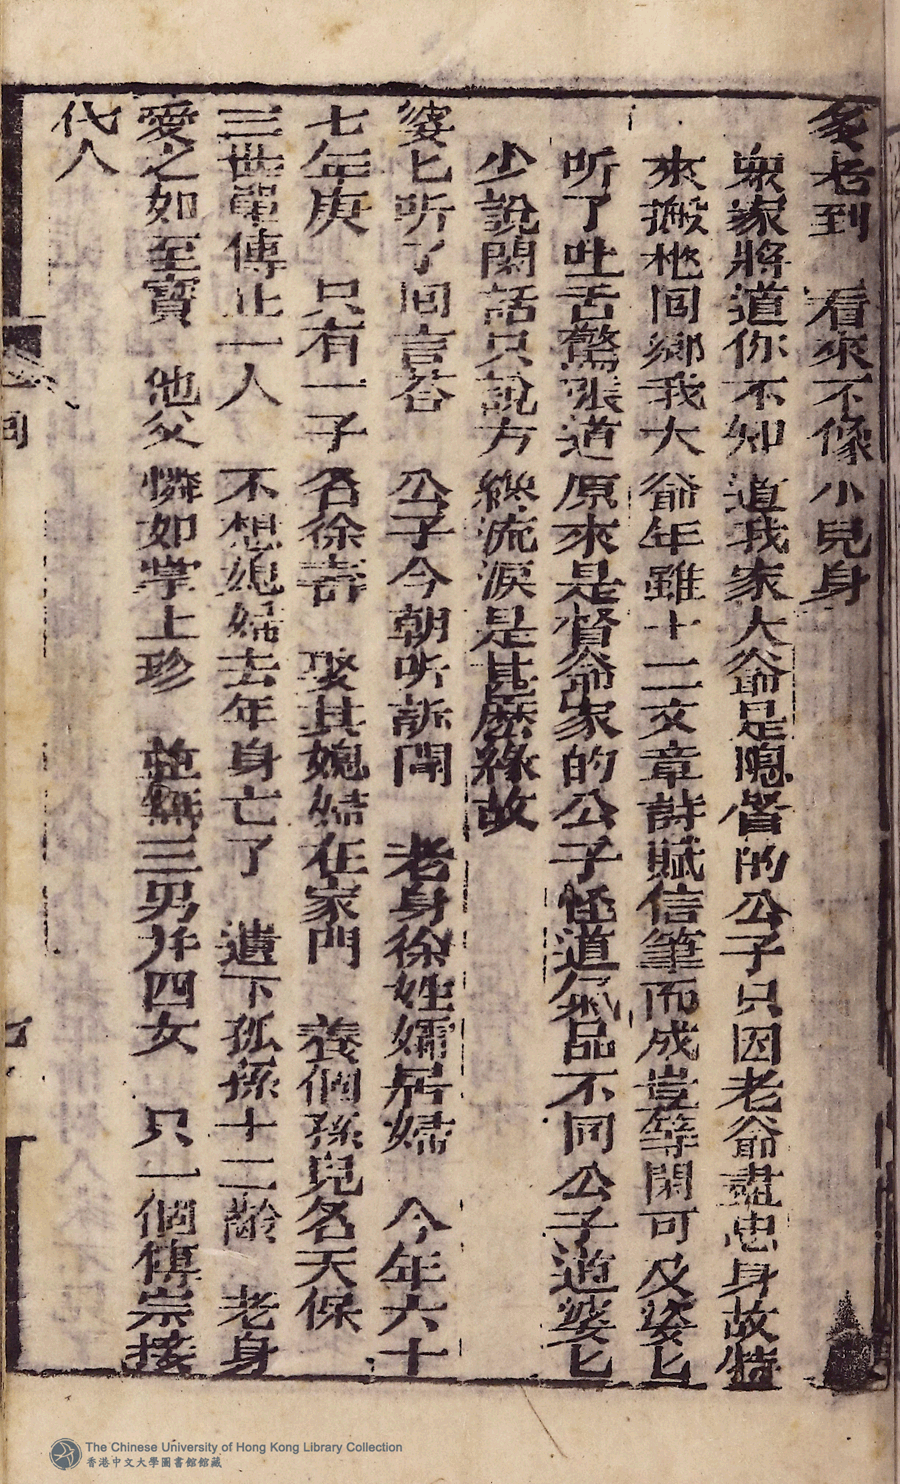 多老到　看來不像小兒身
衆家將道你不知道我家大爺是總督的公子只因老爺盡忠身故特
來搬柩囘鄉我大爺年雖十二文章詩賦信筆而成豈等閑可及婆匕
听了吐舌驚張道原來是督爺家的公子怪道氣品不同公子道婆匕
少說閑話只說方纔流淚是甚麽緣故
婆匕听了囘言答　公子今朝听訴聞　老身徐姓孀居婦　今年六十
七年庚　只有一子名徐壽　娶其媳婦在家門　養個孫兒名天保
三世單傳止一人　不想媳婦去年身亡了　遺下孤孫十二齡　老身
愛之如至寶　他父憐如掌上珍　並無三男并四女　只一個傳宗接
代人
七
The Chinese University of Hong Kong Library Collection
香港中文大學圖書館館藏